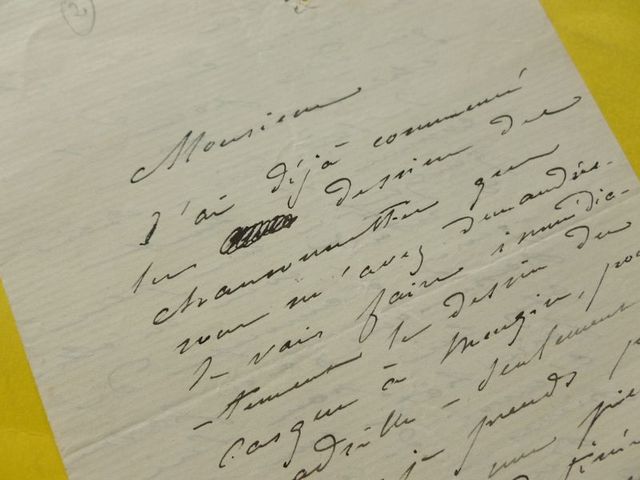 2
Monsieur
J'ai déjà commencé
les dessins des
que
vous m'avez demandés.
Je vais faire immédia-
-tement le dessin du
casque à Mengin, pour
seulement
je prends
une